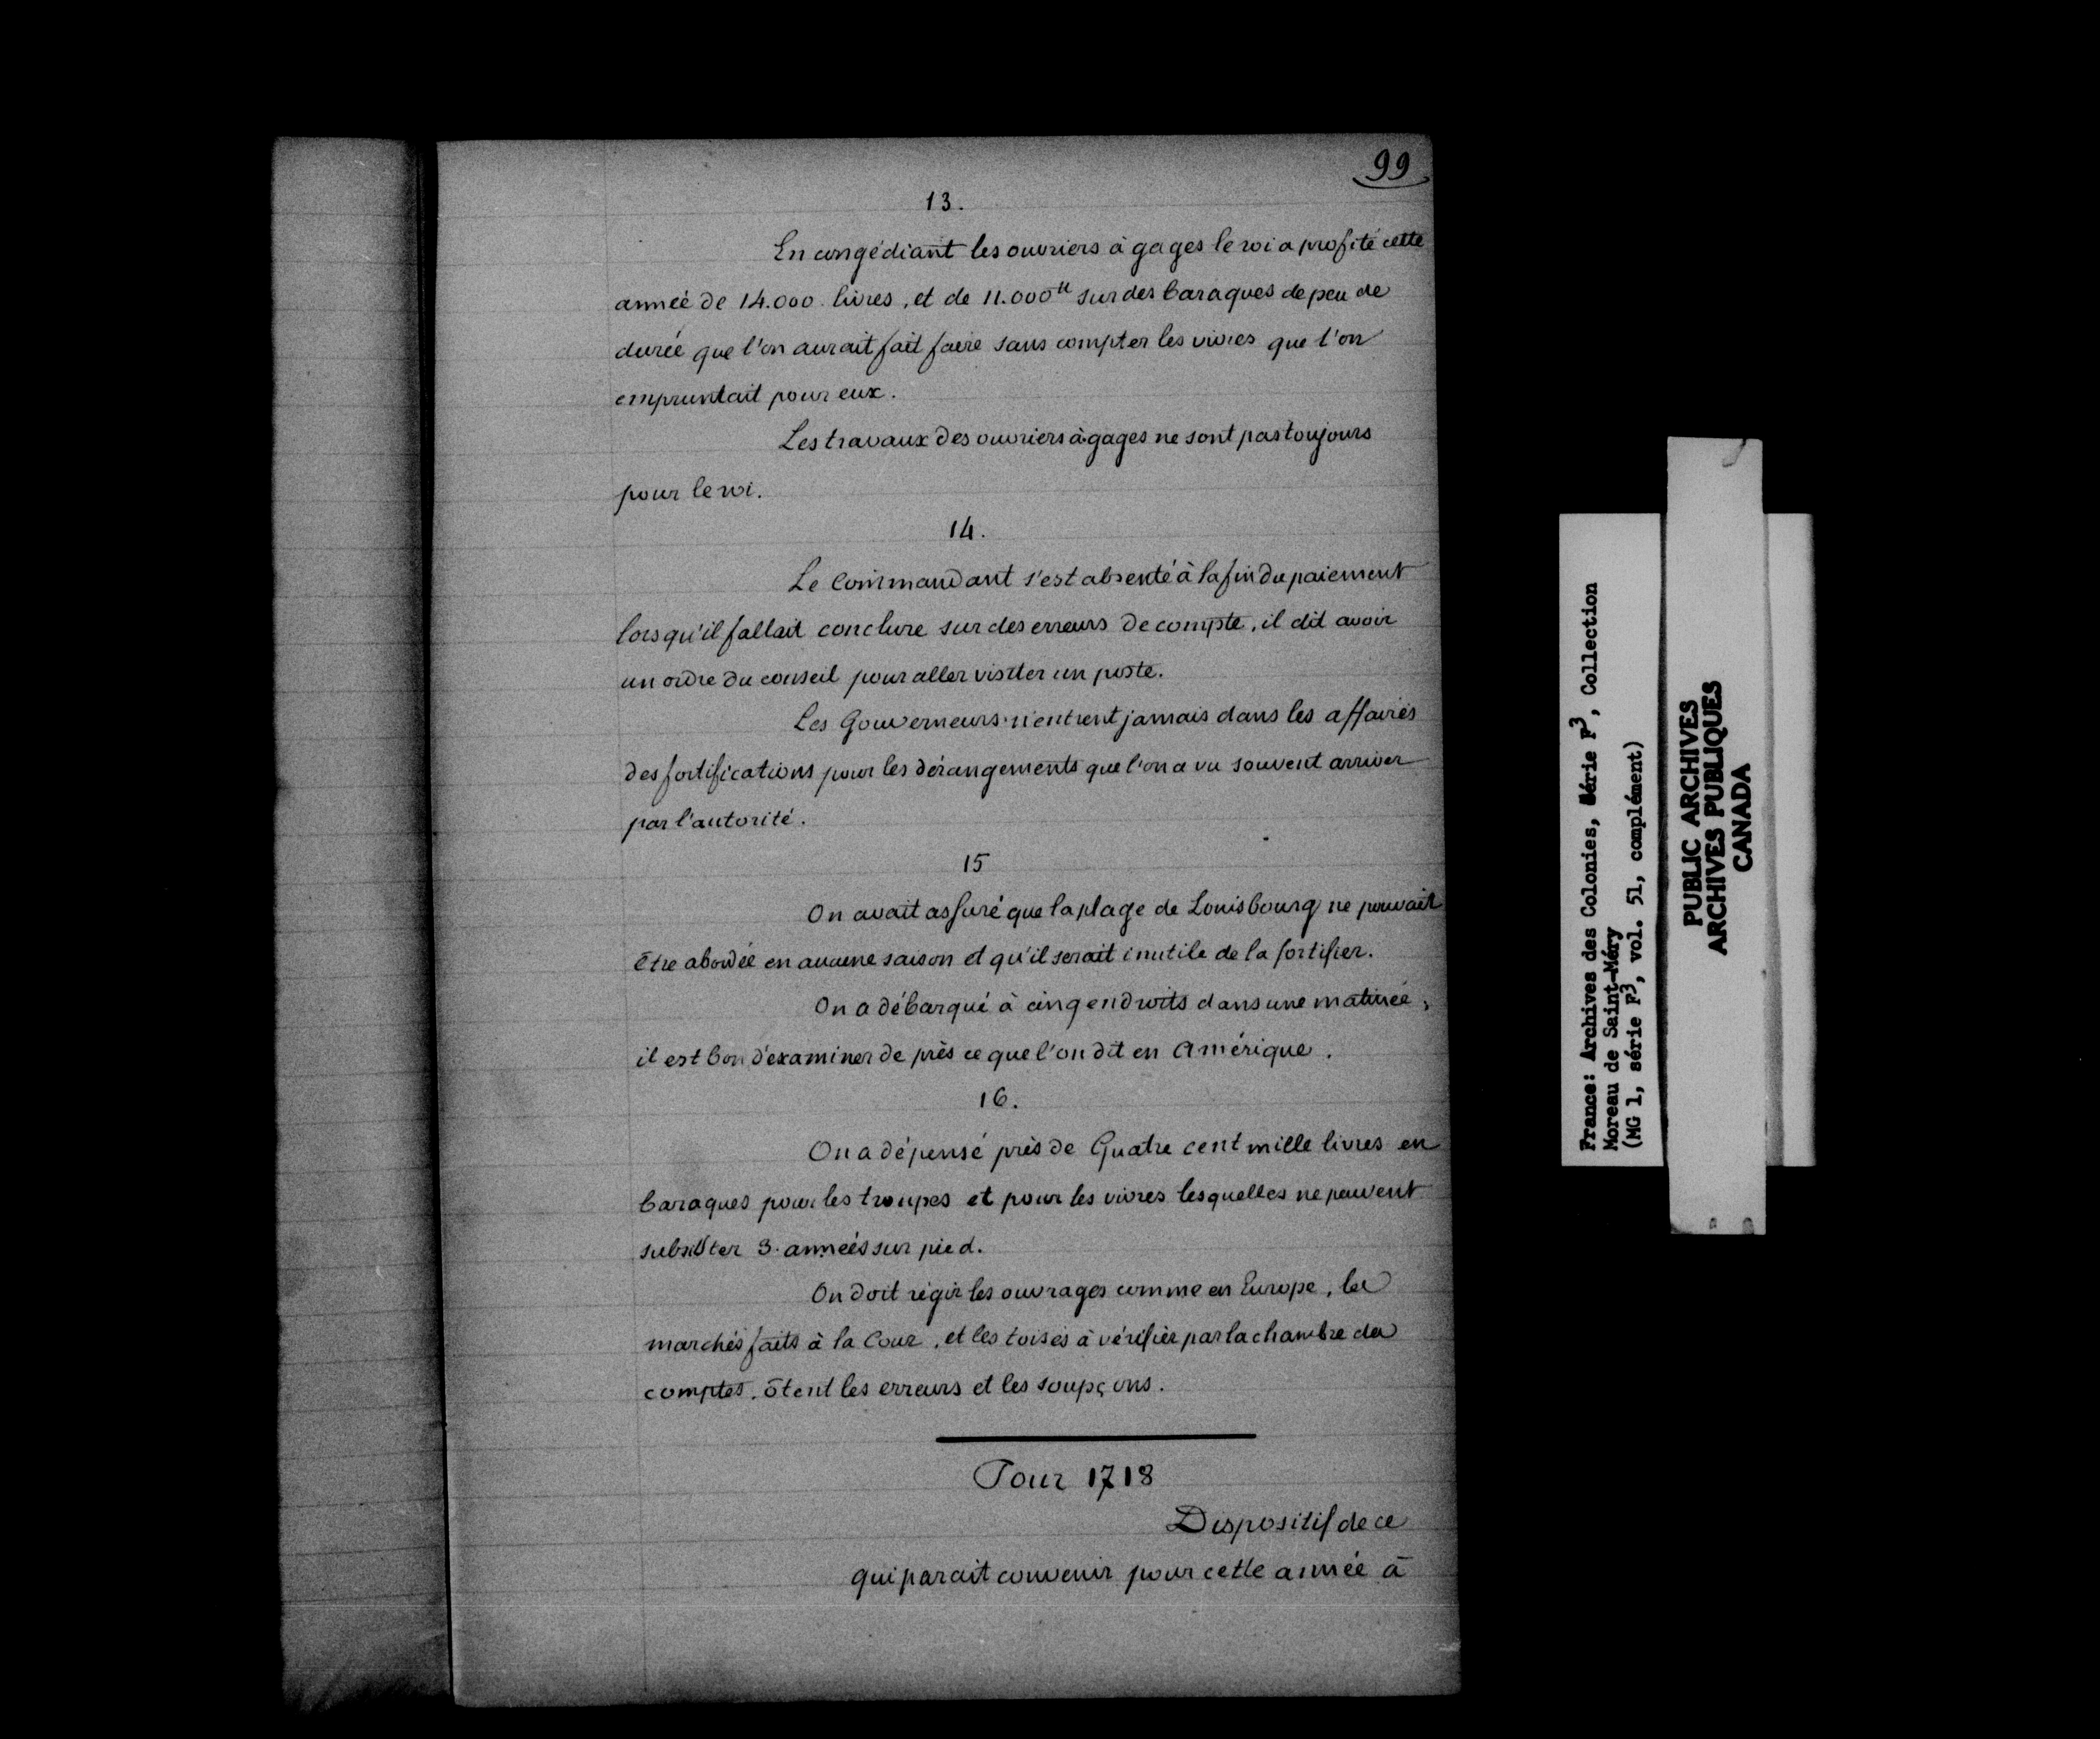 99
13.
En congédiant les ouvriers à gages le roi a profité cette
année de 14.000 livres, et de 11.000tt sur des baraques de peu de
durée que l'on aurait fait faire sans compter les vivres que l'on
empruntait pour eux.
Les travaux des ouvriers à gages ne sont pas toujours
pour le roi.
14.
Le Commandant s'est absenté à la fin du paiement
lorsqu'il fallait conclure sur des erreurs de compte, il dit avoir
un ordre du conseil pour aller visiter un poste.
Les Gouverneurs n'entrent jamais dans les affaires
des fortifications pour les dérangements que l'on a vu souvent arriver
par l'autorité.
15
On avait assuré que la plage de Louisbourg ne pouvait
être abordée en aucune saison et qu'il serait inutile de la fortifier.
On a débarqué à cinq endroits dans une matinée,
il est bon d'examiner de près ce que l'on dit en Amérique.
16.
On a dépensé près de Quatre cent mille livres en
baraques pour les troupes et pour les vivres lesquelles ne peuvent
subsister 3 années sur pied.
On doit régir les ouvrages comme en Europe, les
marchés faits à la Cour, et les toisés à vérifier par la chambre des
comptes, ôtent les erreurs et les soupçons.
Pour 1718
Dispositif de ce
qui parait convenir pour cette année à
France: Archives des Colonies, Série F3, Collection
Moreau de Saint-Méry
(MG 1, série F3, vol. 51, complément)
PUBLIC ARCHIVES
ARCHIVES PUBLIQUES
CANADA